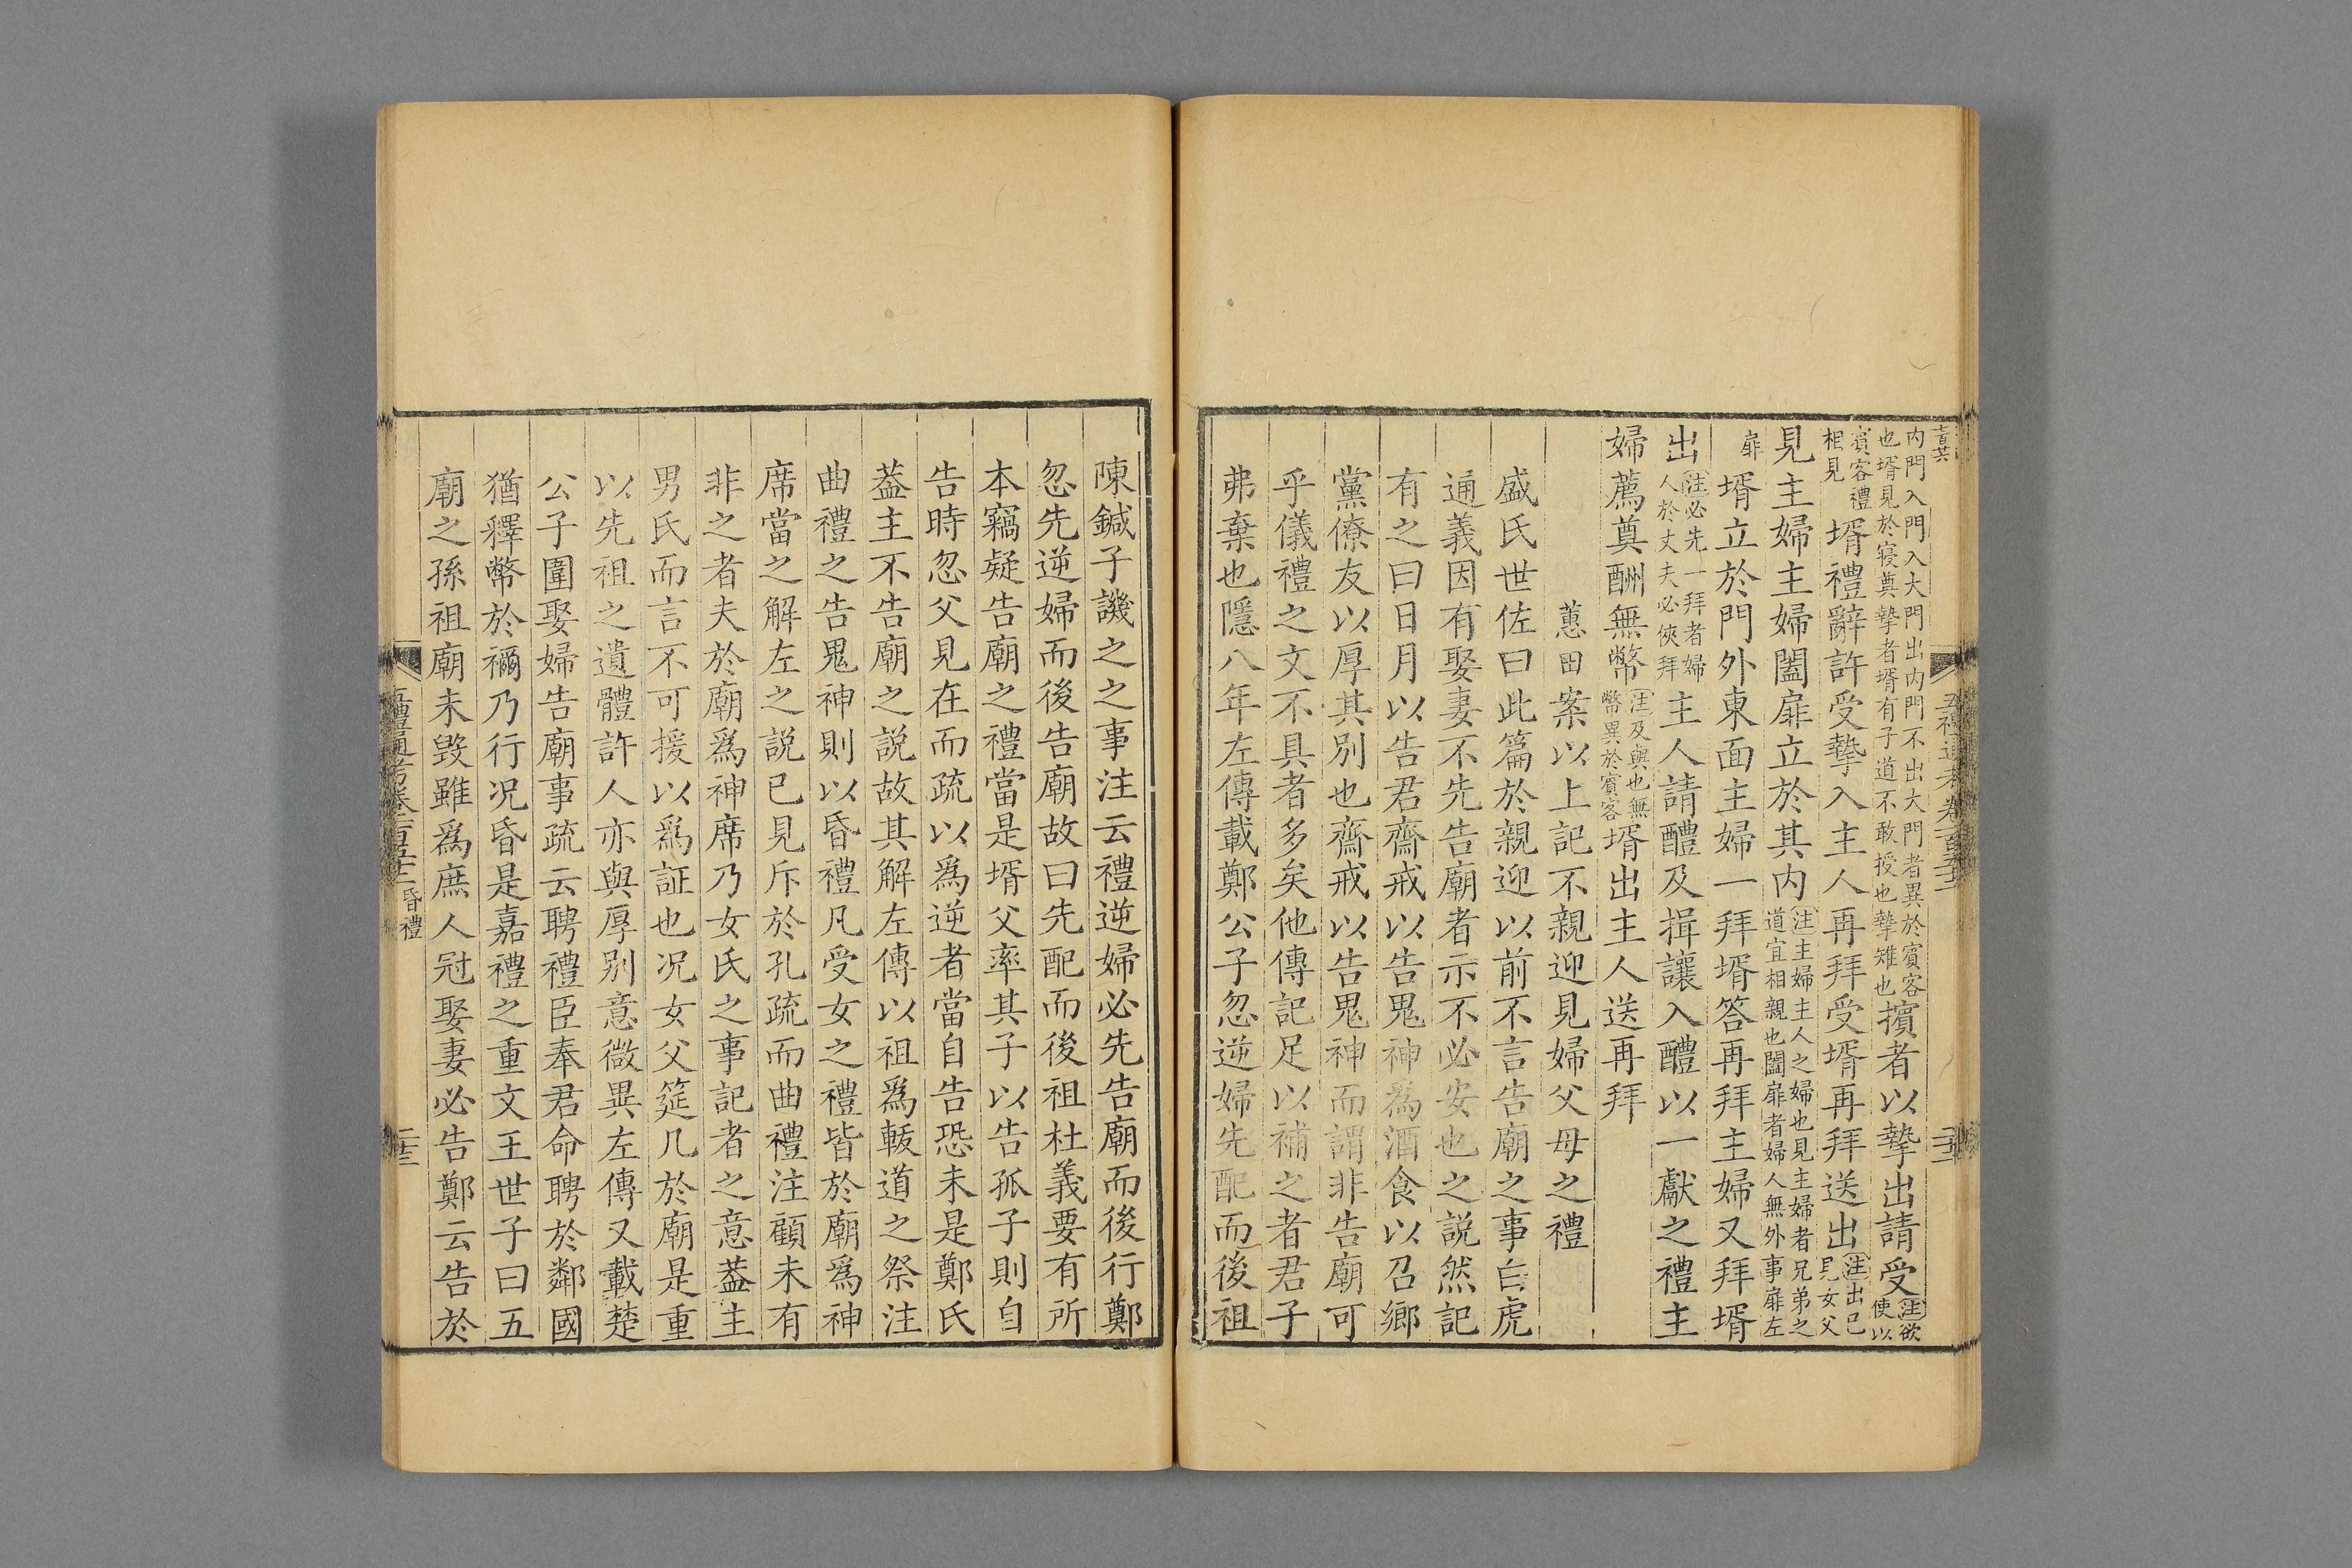 內門入門入大門出內門不出大門者異於賓客
也壻見於寢奠摯者壻有子道不敢授也摯雉也擯者以摯出請受注欲
使以
賓客禮
相見壻禮辭許受摯入主人再拜受壻再拜送出注出已
見女父
見主婦主婦闔扉立於其內注主婦主人之婦也見主婦者兄弟之
道宜相親也闔扉者婦人無外事扉左
扉壻立於門外東面主婦一拜壻答再拜主婦又拜壻
出注必先一拜者婦
人於丈夫必俠拜主人請醴及揖讓入醴以一獻之禮主
婦薦奠酬無幣注及與也無
幣異於賓客壻出主人送再拜
蕙田案以上記不親迎見婦父母之禮
盛氏世佐曰此篇於親迎以前不言告廟之事白虎
通義因有娶妻不先告廟者示不必安也之説然記
有之曰日月以告君齋戒以告鬼神為酒食以召鄉
黨僚友以厚其別也齋戒以告鬼神而謂非告廟可
乎儀禮之文不具者多矣他傳記足以補之者君子
弗棄也隱八年左傳載鄭公子忽逆婦先配而後祖
陳鍼子譏之之事注云禮逆婦必先告廟而後行鄭
忽先逆婦而後告廟故曰先配而後祖杜義要有所
本竊疑告廟之禮當是壻父率其子以告孤子則自
告時忽父見在而疏以為逆者當自告恐未是鄭氏
葢主不告廟之說故其解左傳以祖為軷道之祭注
曲禮之告鬼神則以昏禮凡受女之禮皆於廟爲神
席當之解左之説已見斥於孔疏而曲禮注顧未有
非之者夫於廟爲神席乃女氏之事記者之意葢主
男氏而言不可援以爲証也況女父筵几於廟是重
以先祖之遺體許人亦與厚別意微異左傳又載楚
公子圍娶婦告廟事疏云聘禮臣奉君命聘於鄰國
猶釋幣於禰乃行況昏是嘉禮之重文王世子曰五
廟之孫祖廟未毀雖爲庶人冠娶妻必告鄭云告於
五禮通考卷一百五十二 昏禮
二十三